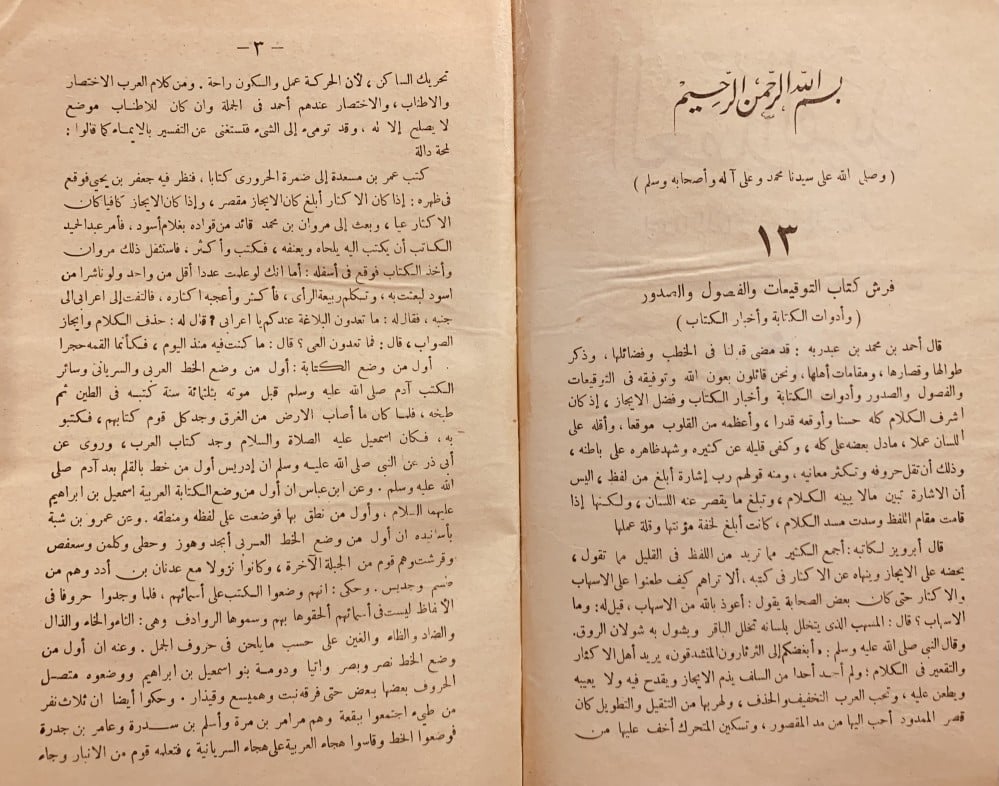 بسم الله الرحمن الرحيم
( وصلى الله على سيدنا محمد وعلى آله وأصحابه وسلم )
١٣
فرش كتاب التوقيعات والفصول والصدور
( وأدوات الكتابة وأخبار الكتاب )
قال أحمد بن محمد بن عبدربه : قد مضى قولنا فى الخطب وفضائلها ، وذكر
طوالها وقصارها ، ومقامات أهلها ، ونحن قائلون بعون الله وتوفيقه فى التوقيعات
والفصول والصدور وأدوات الكتابة وأخبار الكتاب وفضل الايجاز ، إذ كان
اشرف الكلام كله حسنا وأوقعه قدرا ، وأعظمه من القلوب موقعا ، وأقله على
اللسان عملا ، مادل بعضه على كله ، وكفى قليله عن كثيره وشهد ظاهره على باطنه ،
وذلك أن تقل حروفه وتكثر معانيه ، ومنه قولهم رب إشارة أبلغ من لفظ ، اليس
أن الاشارة تبين مالا يبينه الكلام ، وتبلغ ما يقصر عنه اللسان ، ولكنها إذا
قامت مقام اللفظ وسدت مسد الكلام ، كانت أبلغ لخفة مؤنتها وقلة عملها
قال أبرويز لكاتبه : أجمع الكثير مما تريد من اللفظ فى القليل مما تقول ،
يحضه على الايجاز وينهاه عن الاكثار فى كتبه ، ألا تراهم كيف طعنوا على الاسهاب
والاكثار حتى كان بعض الصحابة يقول : أعوذ بالله من الاسهاب ، قيل له : وما
الاسهاب ؟ قال : المسهب الذى يتخلل بلسانه تخلل الباقر ويشول به شولان الروق.
وقال النبي صلى الله عليه وسلم : « أبغضكم إلى الثرثارون المتشدقون» يريد أهل الاكثار
والتقعير فى الكلام : ولم أجد أحدا من السلف يذم الايجاز ويقدح فيه ولا يعيبه
ويطعن عليه ، وتحب العرب التخفيف والحذف ، ولهربها من التثقيل والتطويل كان
قصر الممدود أحب اليها من مد المقصور ، وتسكين المتحرك أخف عليها من
– ٣ –
تحريك الساكن ، لأن الحركة عمل والسكون راحة . ومن كلام العرب الاختصار
والاطناب ، والاختصار عندهم أحمد فى الجملة وان كان للاطناب موضع
لا يصلح إلا له ، وقد تومىء إلى الشىء فتستغنى عن التفسير بالايماء كما قالوا :
لمحة دالة
كتب عمر بن مسعدة إلى ضمرة الحرورى كتابا ، فنظر فيه جعفر بن يحيى فوقع
فى ظهره : إذا كان الاكثار أبلغ كان الايجاز مقصر ، وإذا كان الايجاز كافيا كان
الاكثار عيا ، وبعث إلى مروان بن محمد قائد من قواده بغلام أسود ، فأمر عبد الحميد
الكاتب أن يكتب اليه يلحاه ويعنفه ، فكتب وأكثر ، فاستثقل ذلك مروان
وأخذ الكتاب فوقع فى أسفله : أما انك لو علمت عددا أقل من واحد ولونا شرا من
اسود لبعثت به ، وتكلم ربيعة الرأى ، فأكثر وأعجبه اكثاره ، فالتفت إلى اعرابى الى
جنبه ، فقال له : ما تعدون البلاغة عندكم يا اعرابى ؟ قال له : حذف الكلام وايجاز
الصواب ، قال : فما تعدون العى ؟ قال : ما كنت فيه منذ اليوم ، فكأنما القمه حجرا
أول من وضع الكتابة : أول من وضع الخط العربى والسريانى وسائر
الكتب آدم صلى الله عليه وسلم قبل موته بثلثمائة سنة كتبه فى الطين ثم
طبخه ، فلما كان ما أصاب الارض من الغرق وجد كل قوم كتابهم ، فكتبو
به ، فكان اسمعيل عليه الصلاة والسلام وجد كتاب العرب ، وروى عن
أبى ذر عن النبى صلى الله عليه وسلم ان إدريس أول من خط بالقلم بعد آدم صلى
الله عليه وسلم . وعن ابن عباس ان أول من وضع الكتابة العربية اسمعيل بن ابراهيم
عليهما السلام ، وأول من نطق بها فوضعت على لفظه ومنطقه . وعن عمرو بن شبة
بأسانيده ان أول من وضع الخط العربى أبجد وهوز وحطى وكلمن وسعفص
وقرشت وهم قوم من الجبلة الآخرة ، وكانوا نزولا مع عدنان بن أدد وهم من
طسم وجديس . وحكى : انهم وضعوا الكتب على أسمائهم ، فلما وجدوا حروفا فى
الالفاظ ليست فى أسمائهم ألحقوها بهم وسموها الروادف وهى : الثاء والخاء والذال
والضاد والظاء والغين على حسب ما يلحن فى حروف الجمل . وعنه ان أول من
وضع الخط نصر وبصر واتيا ودومة بنو اسمعيل بن ابراهيم ووضعوه متصل
الحروف بعضها ببعض حتى فرقه نبت وهميسع وقيذار . وحكوا أيضا ان ثلاث نفر
من طىء اجتمعوا ببقعة وهم مرامر بن مرة وأسلم بن سدرة وعامر بن جدرة
فوضعوا الخط وقاسوا هجاء العربية على هجاء السريانية ، فتعلمه قوم من الانبار وجاء